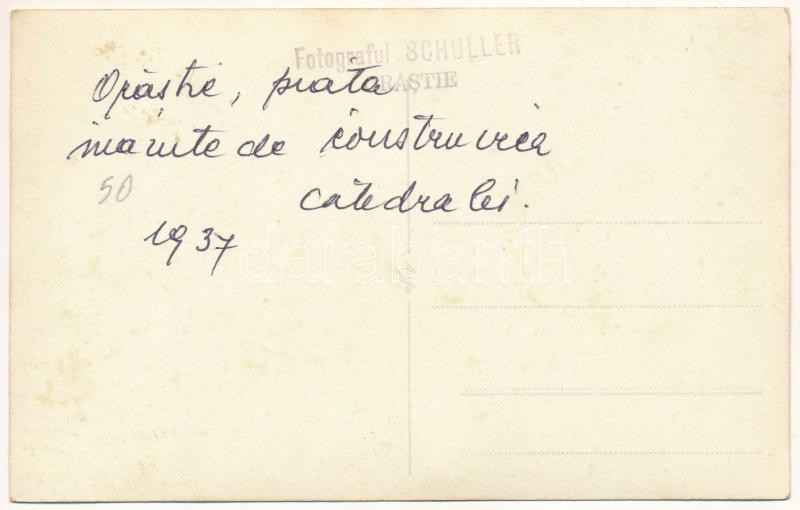 Fotograful SCHULLER
ORĂȘTIE
Orăștie, piața
înainte de construirea
catedralei.
50
1937
darabanth